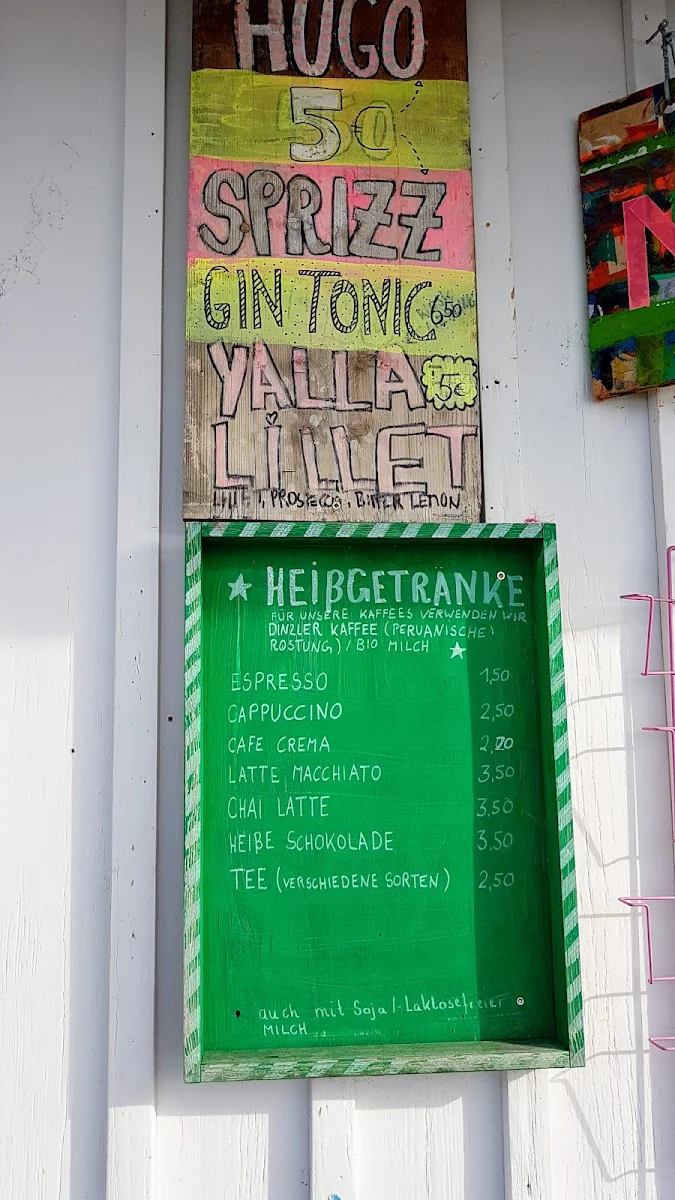 HUGO
5€
SPRIZZ
GIN TONIC 6,50
YALLA 5€
LILLET
LILLET, PROSECCO, BITTER LEMON
HEIßGETRANKE
FÜR UNSERE KAFFEES VERWENDEN WIR
DINZLER KAFFEE (PERUANISCHE
RÖSTUNG) / BIO MILCH
ESPRESSO 1,50
CAPPUCCINO 2,50
CAFE CREMA 2,20
LATTE MACCHIATO 3,50
CHAI LATTE 3,50
HEIßE SCHOKOLADE 3,50
TEE (VERSCHIEDENE SORTEN) 2,50
auch mit Soja/-Laktosefreier
MILCH